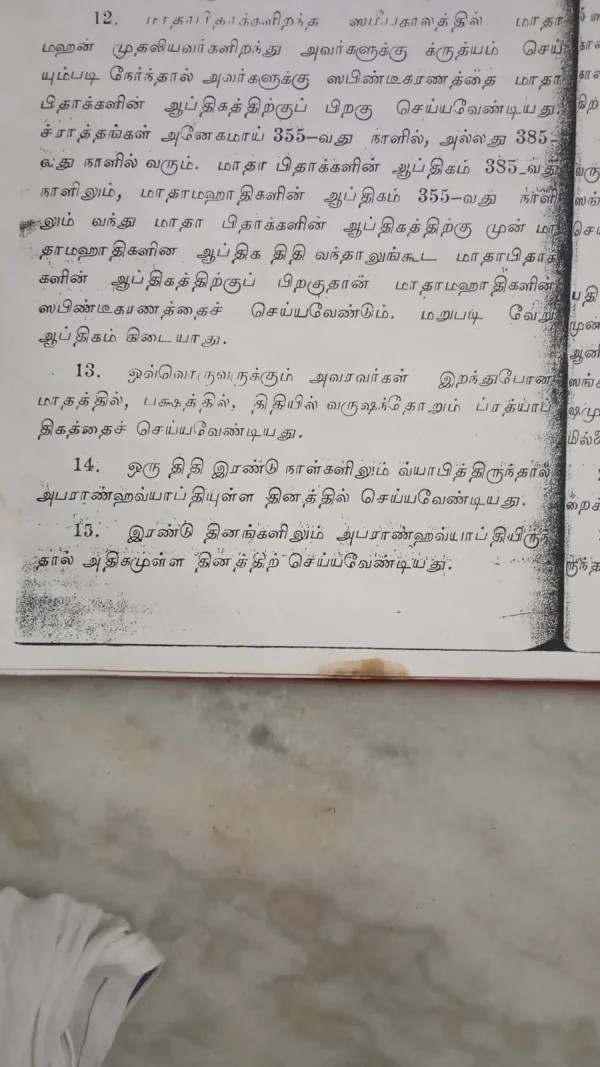 12. மாதாபிதாக்களிறந்த ஸமீபகாலத்தில் மாதா
மஹன் முதலியவர்களிறந்து அவர்களுக்கு க்ருத்யம் செய்
யும்படி நேர்ந்தால் அவர்களுக்கு ஸபிண்டீகரணத்தை மாதா
பிதாக்களின் ஆப்திகத்திற்குப் பிறகு செய்யவேண்டியது.
ச்ராத்தங்கள் அனேகமாய் 355-வது நாளில், அல்லது 385-
வது நாளில் வரும். மாதா பிதாக்களின் ஆப்திகம் 385-வது
நாளிலும், மாதாமஹாதிகளின் ஆப்திகம் 355-வது நாளி
லும் வந்து மாதா பிதாக்களின் ஆப்திகத்திற்கு முன் மா
தாமஹாதிகளின ஆப்திக திதி வந்தாலுங்கூட மாதாபிதாக்
களின் ஆப்திகத்திற்குப் பிறகுதான் மாதாமஹாதிகளின்
ஸபிண்டீகரணத்தைச் செய்யவேண்டும். மறுபடி வேறு
ஆப்திகம் கிடையாது.
13. ஒவ்வொருவருக்கும் அவரவர்கள் இறந்துபோன
மாதத்தில், பக்ஷத்தில், திதியில் வருஷந்தோறும் ப்ரத்யாப்
திகத்தைச் செய்யவேண்டியது.
14. ஒரு திதி இரண்டு நாள்களிலும் வ்யாபித்திருந்தால்
அபராண்ஹவ்யாப்தியுள்ள தினத்தில் செய்யவேண்டியது.
15. இரண்டு தினங்களிலும் அபராண்ஹவ்யாப்தியிருந்
தால் அதிகமுள்ள தினத்திற் செய்யவேண்டியது.